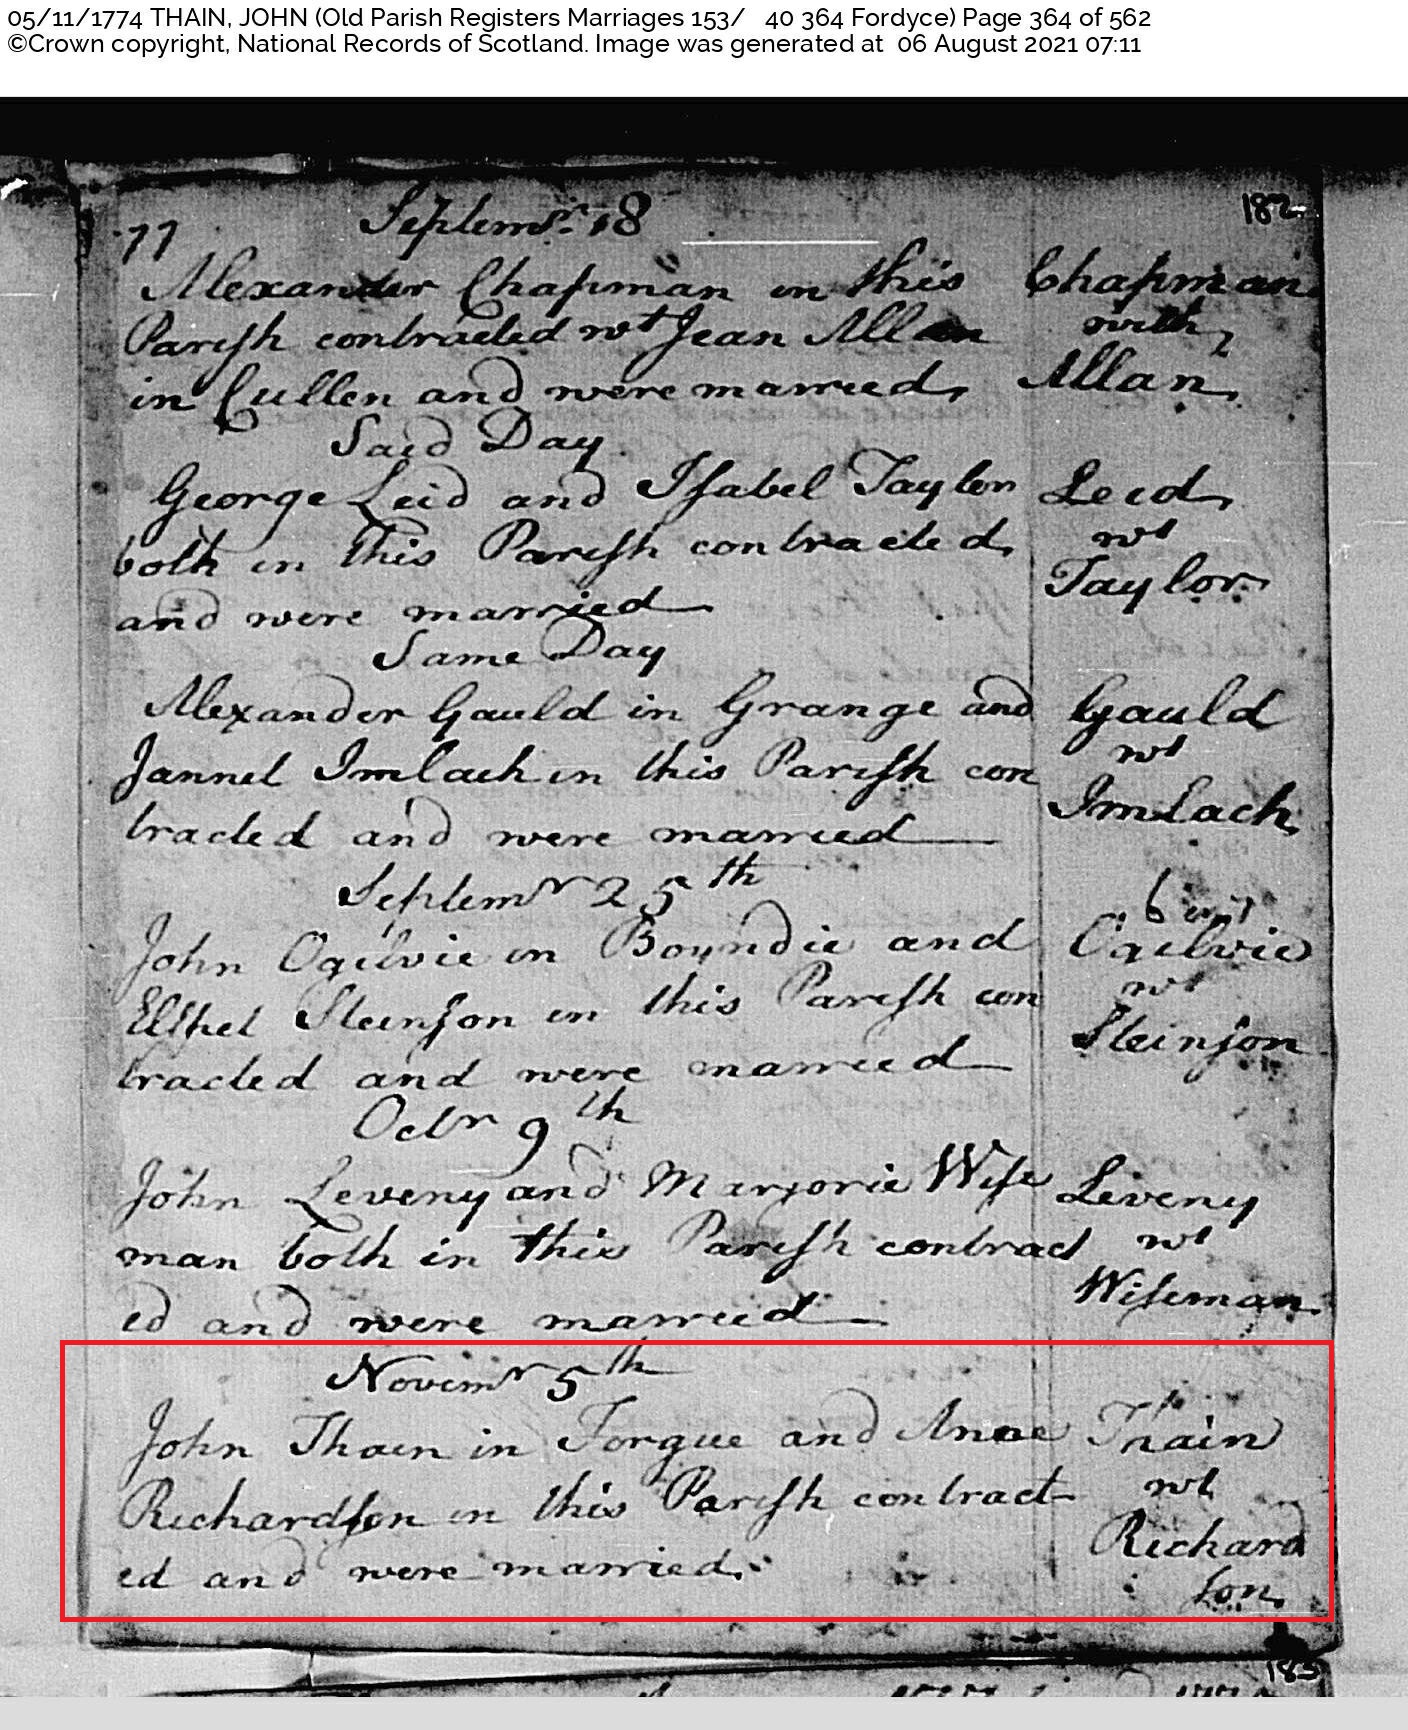 05/11/1774 THAIN, JOHN (Old Parish Registers Marriages 153/ 40 364 Fordyce) Page 364 of 562
©Crown copyright, National Records of Scotland. Image was generated at 06 August 2021 07:11
77 Septemr. 18 182
Alexander Chapman in this Chapman
Parish contracted wt Jean Allan with
in Cullen and were married, Allan,
Said Day
George Leid and Isabel Taylor Leid,
both in this Parish contracted, wt
and were married Taylor
Same Day
Alexander Gauld in Grange and Gauld
Jannet Imlach in this Parish con wt
tracted and were married Imlach,
Septemr 25th
John Ogilvie in Boyndie and Ogilvie
Elspet Steinson in this Parish con wt
tracted and were married Steinson
Octr 9th
John Leveny and Marjorie Wise Leveny
man both in this Parish contract wt
ed and were married Wiseman
Novemr 5th
John Thain in Forgue and Anne Thain
Richardson in this Parish contract wt
ed and were married. Richard
son.
183